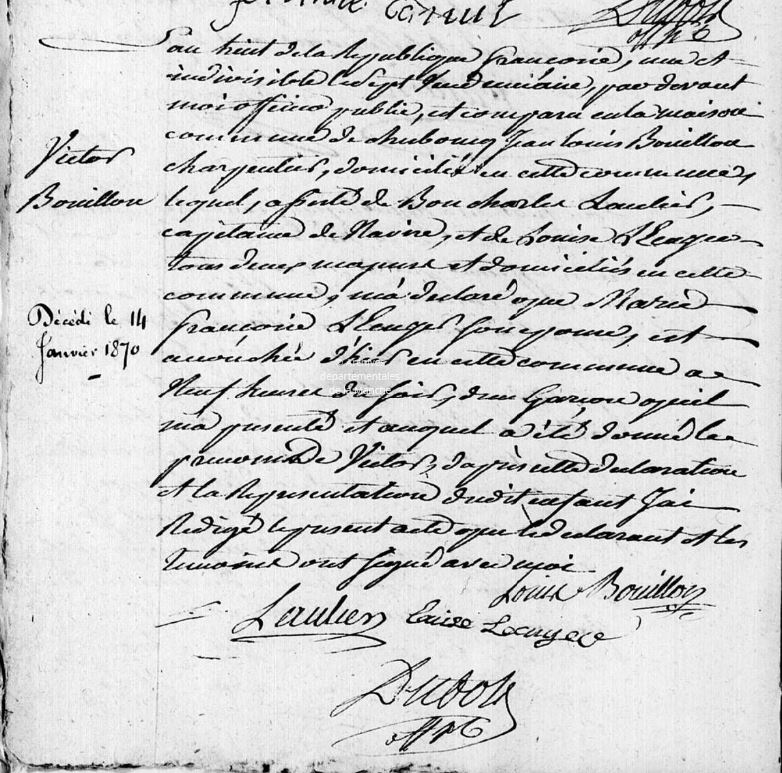 Dubost
off. p. b
Victor
Bouillon
Décédé le 14
Janvier 1870
an huit de la Republique francoise, une et
indivisible le Sept Vendemiaire, par devant
moi officier public, est comparu en la maison
commune de cherbourg Jean louis Bouillon
charpentier, domicilié en cette commune,
lequel, assisté de Bon charles Laulier,
capitaine de Navire, et de Louise
tous deux majeurs et domiciliés en cette
commune, m'a declaré que Marie
francoise son epouse, est
accouchée d'hier en cette commune a
Neuf heures du soir, d'un Garcon qu'il
m'a presenté et auquel a été donné le
prenom de Victor, d'après cette declaration
et la Representation dudit enfant J'ai
Redigé le present acte que le declarant et les
temoins ont signé avec moi
Louis Bouillon
Laulier
departementales
de la manche